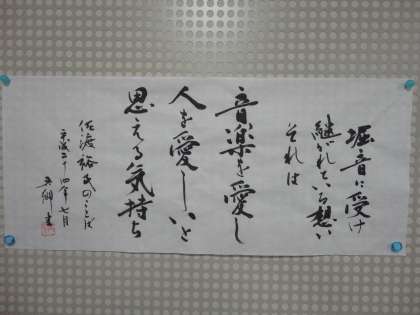 堀音に受け
継がれている想い
それは
音楽を愛し
人を愛しいと
思える気持ち
佐渡裕氏のことば
平成二十四年七月